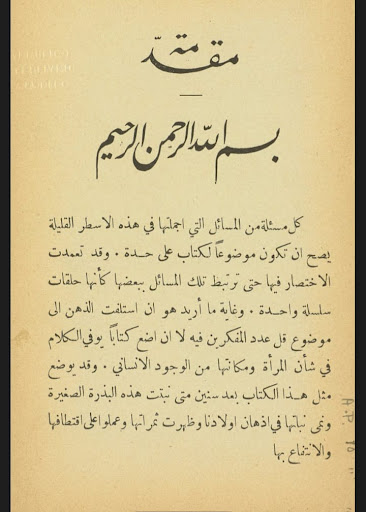 مقدمة
بسم الله الرحمن الرحيم
كل مسئلة من المسائل التي اجملتها في هذه الاسطر القليلة
يصح ان تكون موضوعاً لكتاب على حدة . وقد تعمدت
الاختصار فيها حتى ترتبط تلك المسائل ببعضها كأنها حلقات
سلسلة واحدة . وغاية ما أريد هو ان استلفت الذهن الى
موضوع قل عدد المفكرين فيه لا ان اضع كتاباً يوفي الكلام
في شأن المرأة ومكانتها من الوجود الانساني . وقد يوضع
مثل هذا الكتاب بعد سنين متى نبتت هذه البذرة الصغيرة
ونمى نباتها في اذهان اولادنا وظهرت ثمراتها وعملوا على اقتطافها
والانتفاع بها